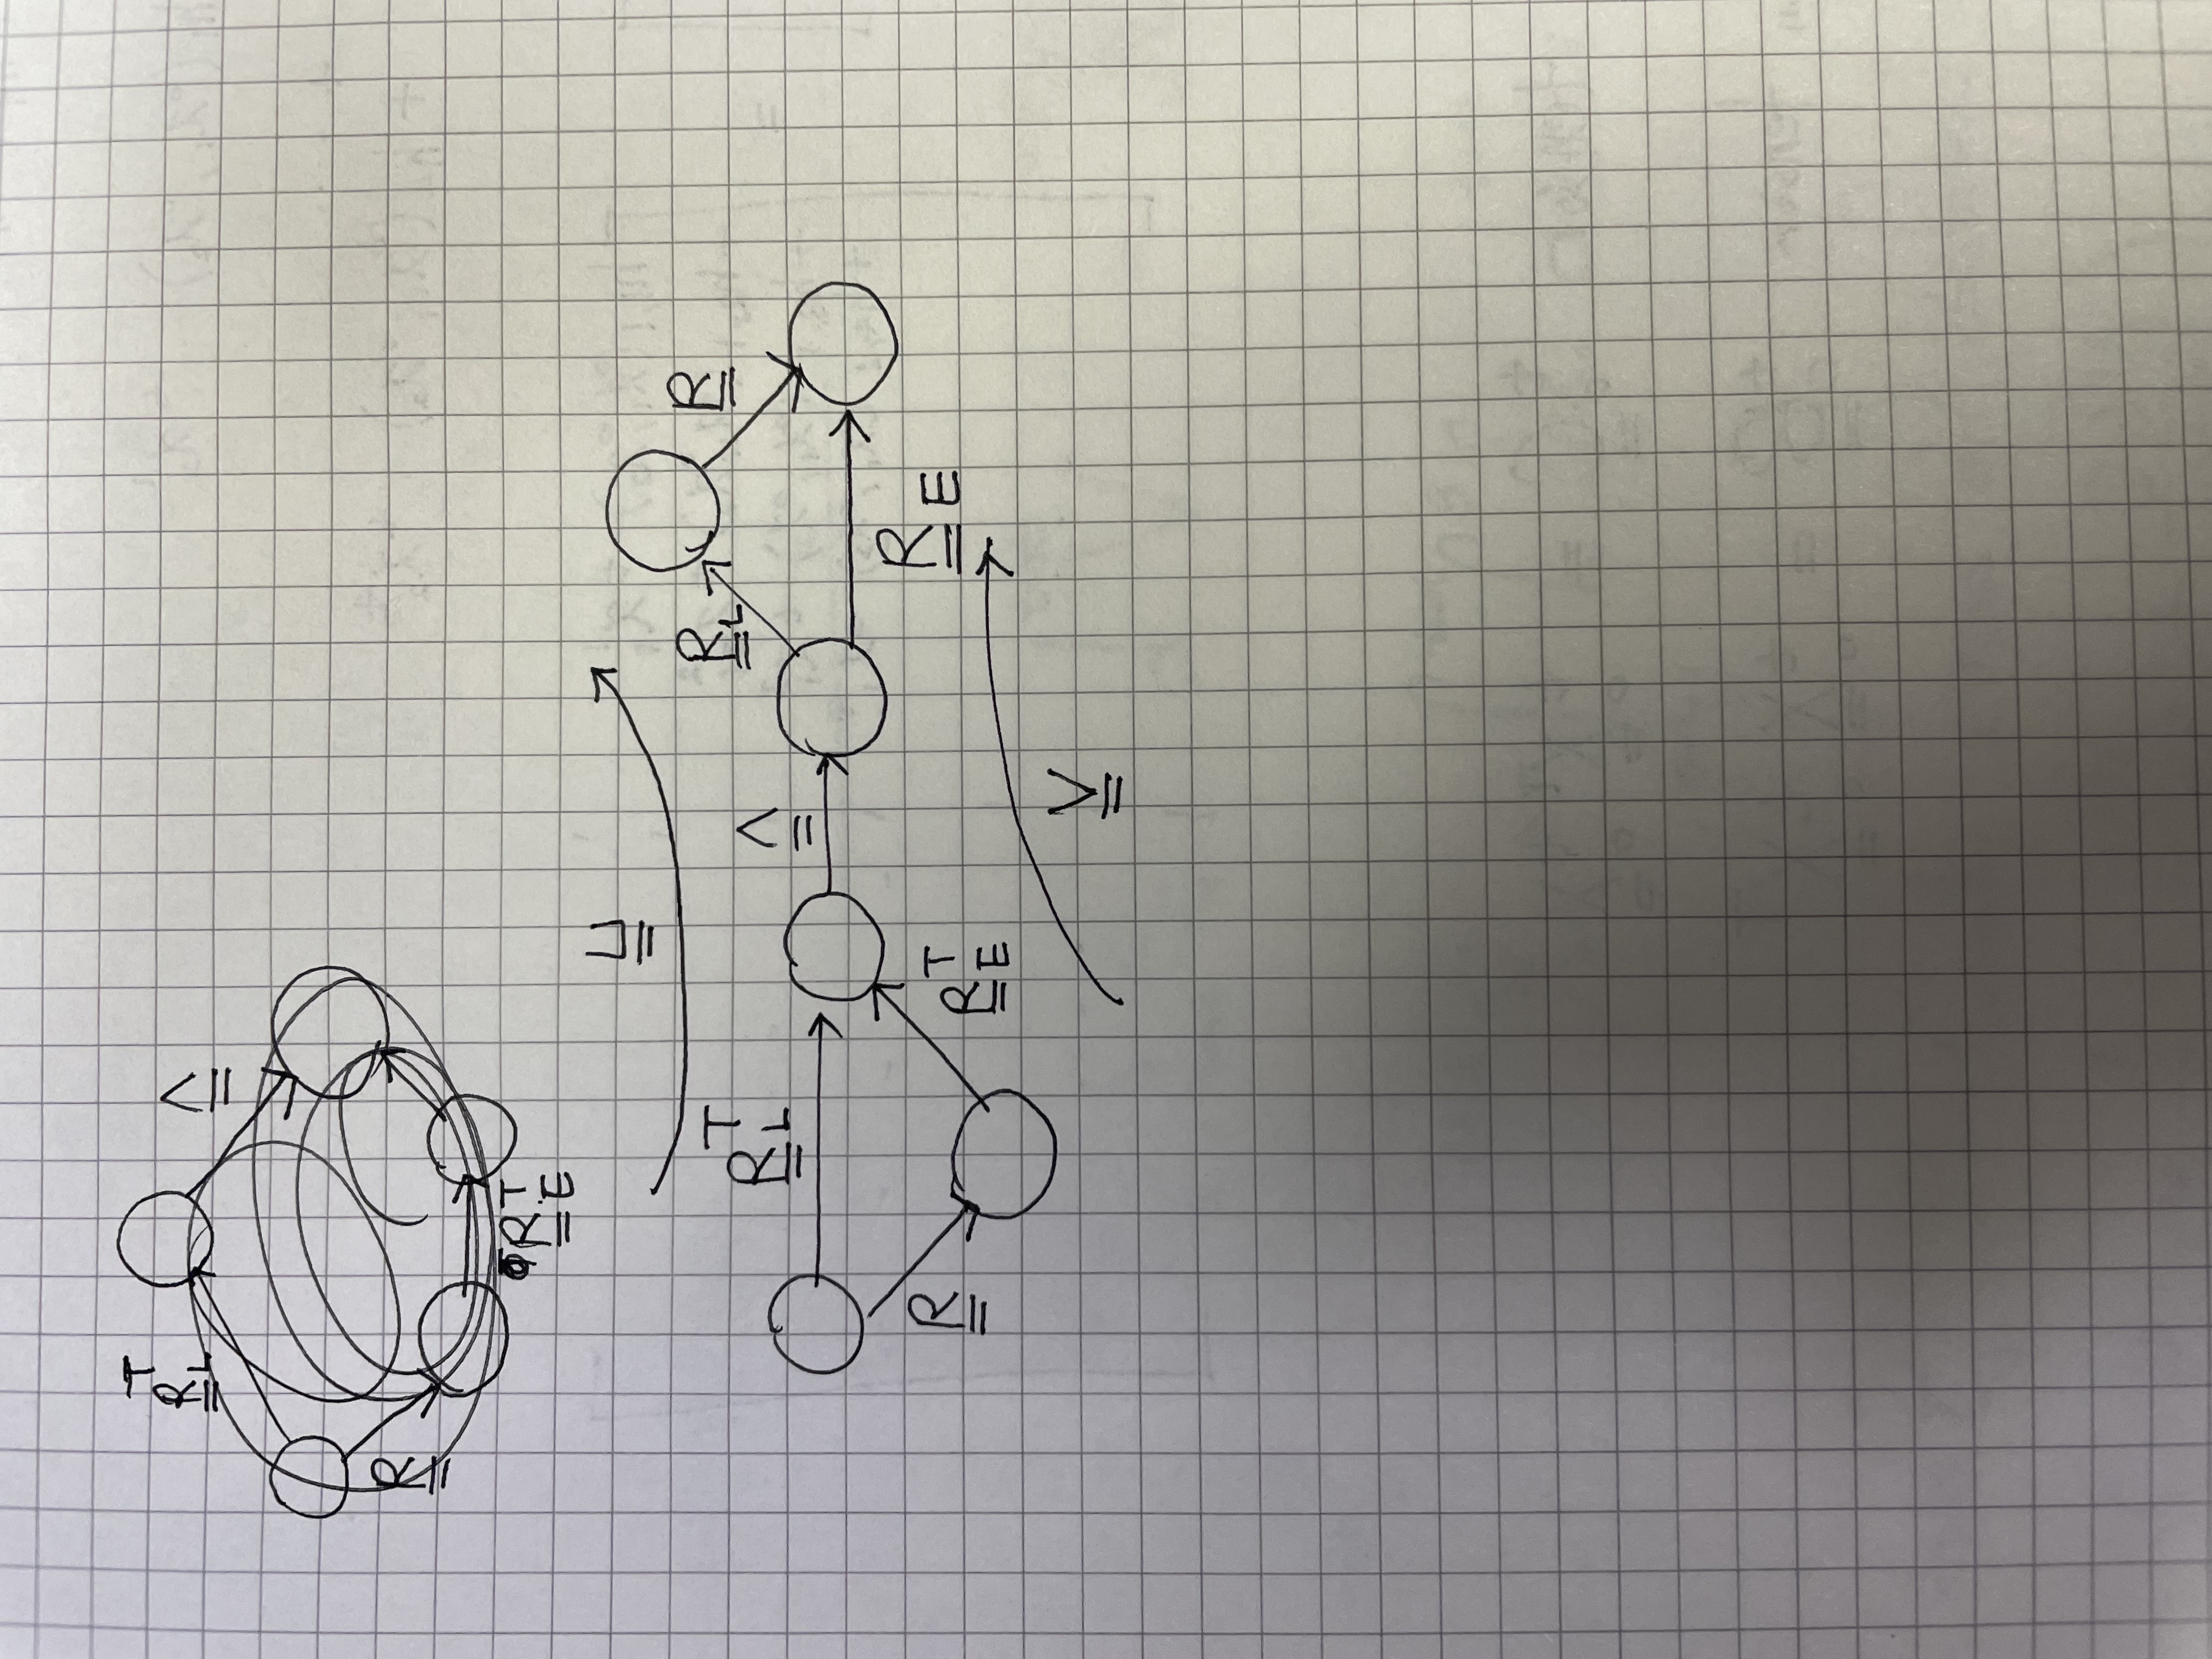 R_L^T Λ
R
R_E^T
U
R_L R
R_L^T Λ
R R_E^T R_E
V